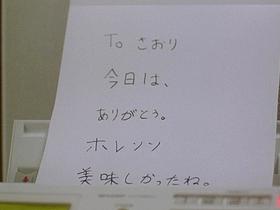 To さおり
今日は、
ありがとう。
ホレンソ
美味しかったね。